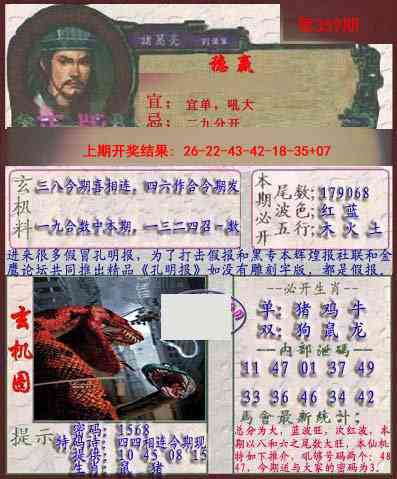 第357期
諸葛亮
稳赢
宜：宜单，吼大
忌：二九分开
上期开奖结果：26-22-43-42-18-35+07
玄机料
三八今期喜相连，四六作合今期发
一九合数中本期，一三二四召一数
本期必开
尾数：179068
波色：红 蓝
五行：木 火 土
进来很多假冒孔明报，为了打击假报和黑专本辉煌报社联和金
鹰论坛共同推出精品《孔明报》如没有雕刻字版，都是假报。
玄机图
--必开生肖--
单：猪 鸡 牛
双：狗 鼠 龙
--内部泄码--
11 47 01 37 49
33 36 46 34 42
馬會最新統计：
总分为大，蓝波旺，次红波，本
期以八和六之尾数大旺，本仙机
特如下推介，吼够号码两个：48
47，今期送与大家的密码为3.
提示
密码：1568
特码诗：四四相连今期现
提供：10 45 08 15
生肖：鼠 猪